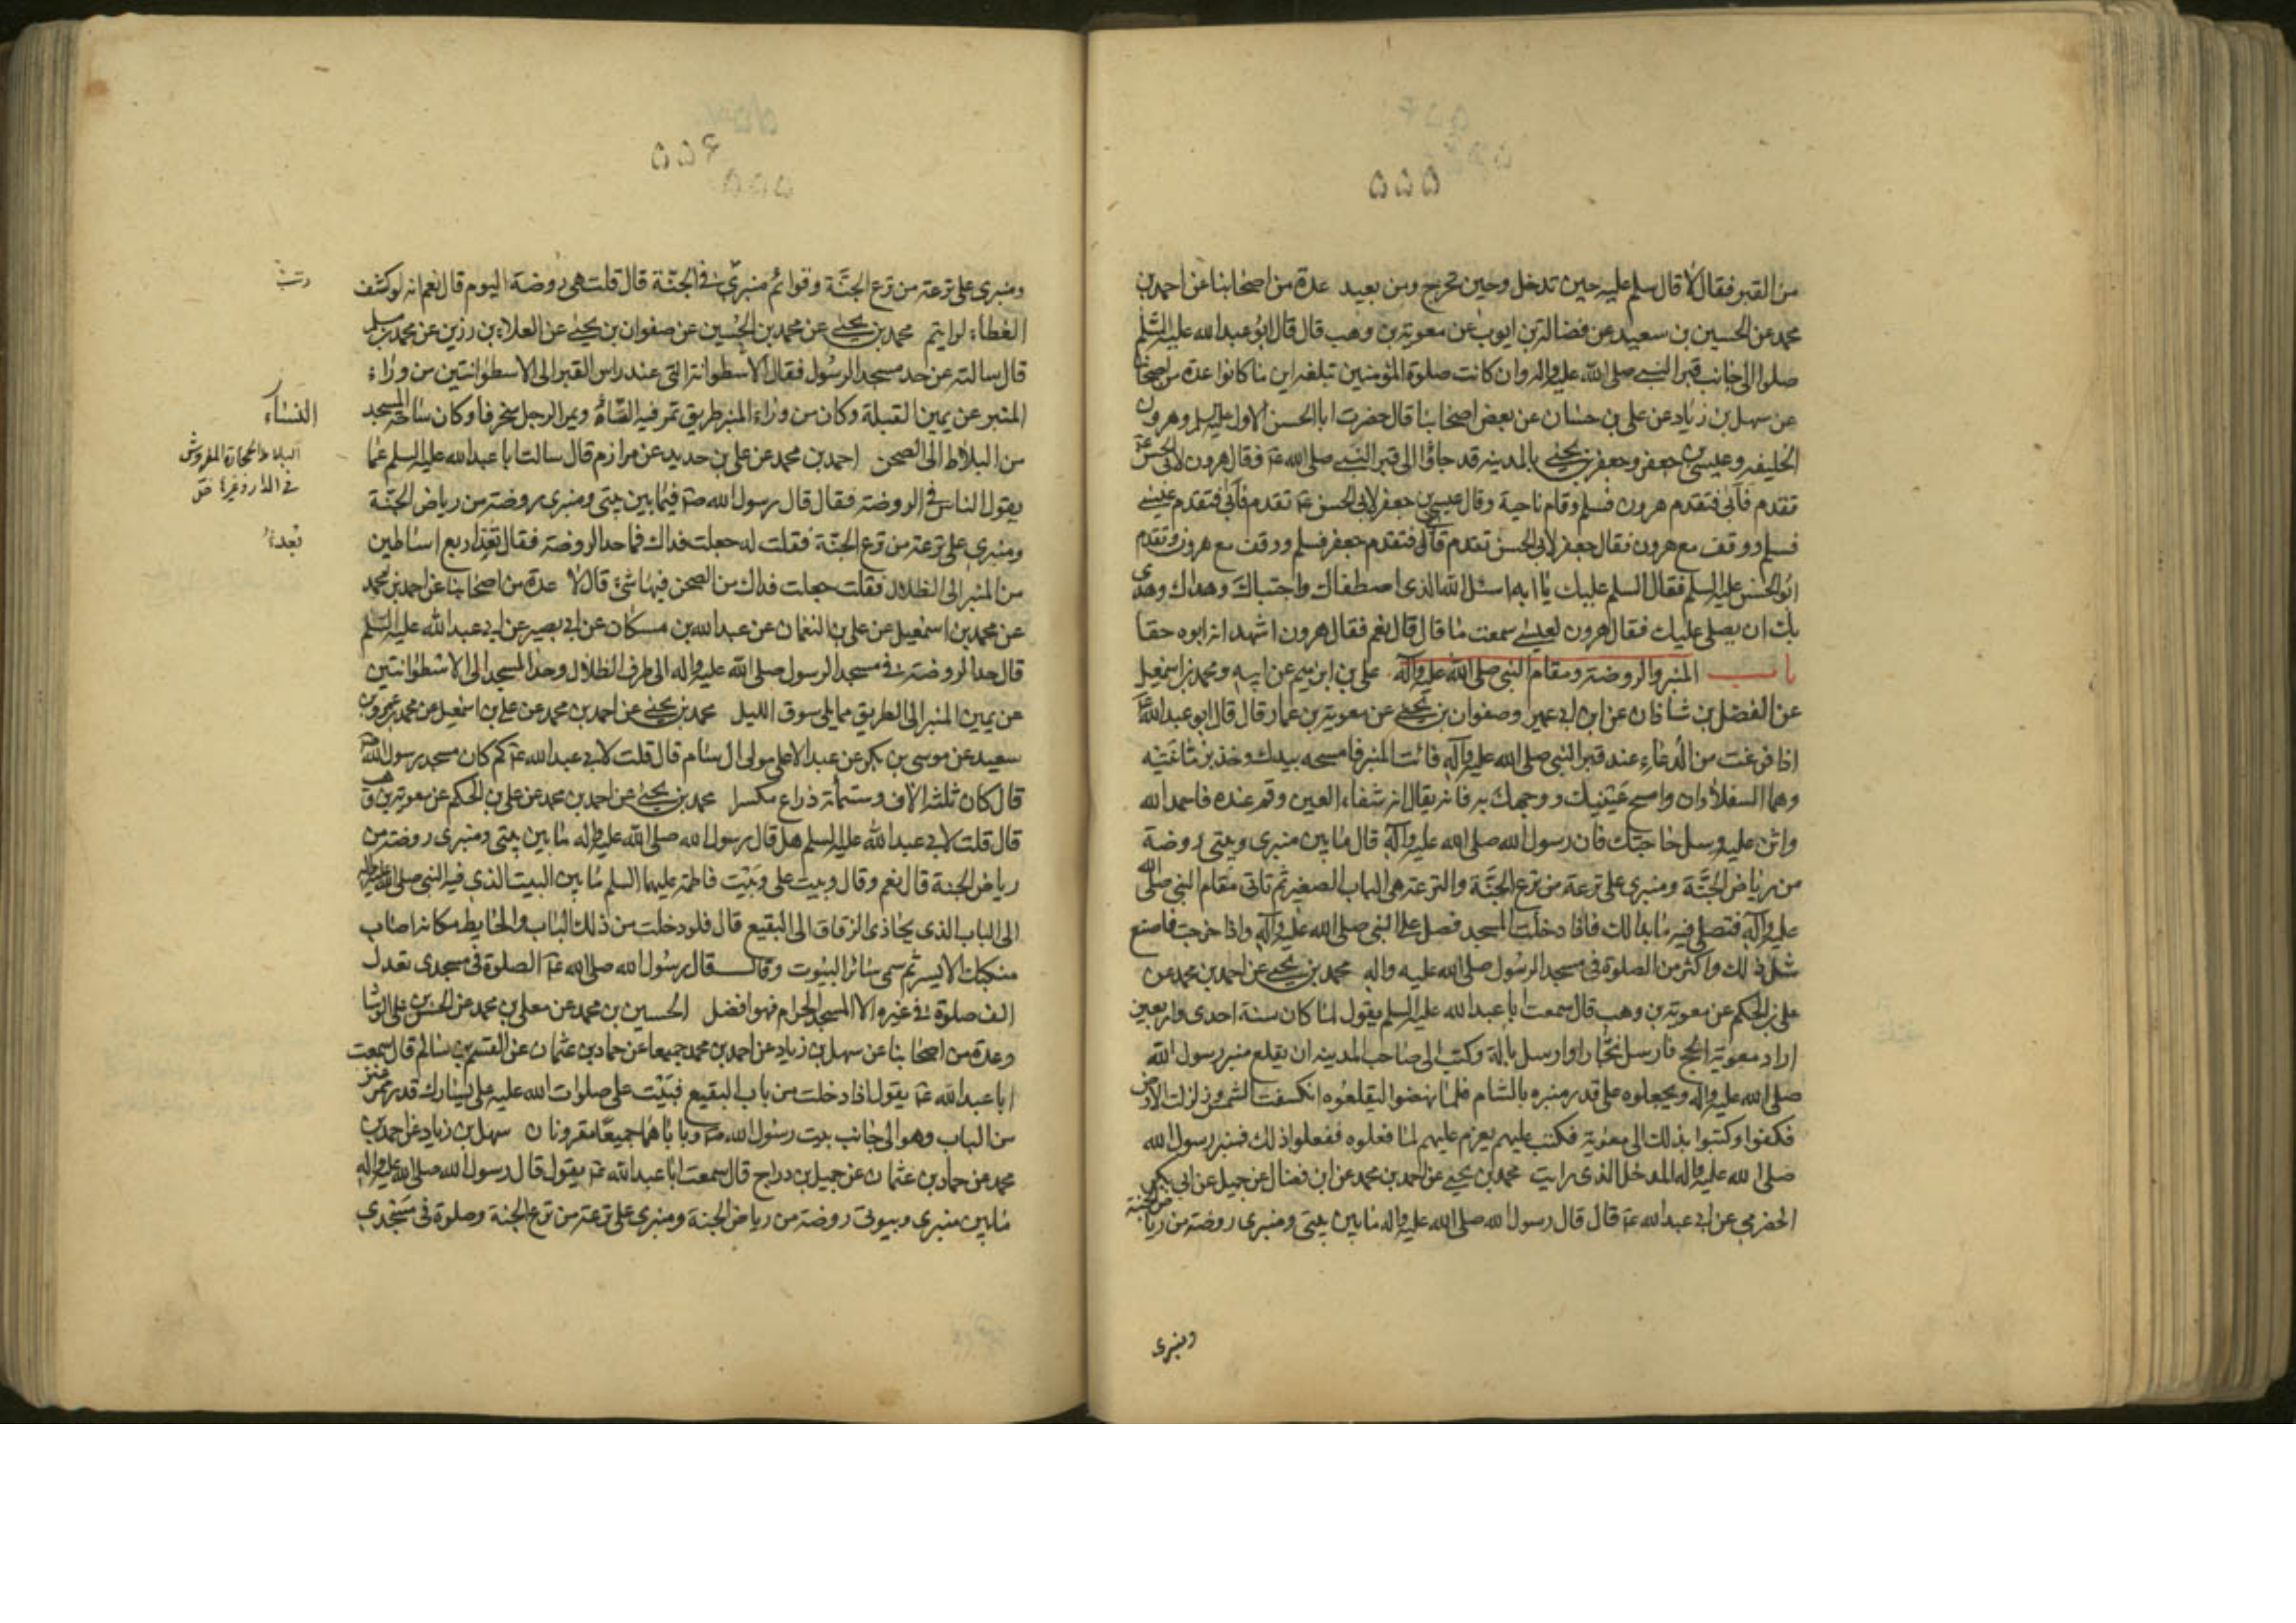 ۵۵۵
من القبر فقال لا قال سلم عليه حين تدخل وحين تخرج ومن بعيد عدة من اصحابنا عن احمد بن
محمد عن الحسين بن سعيد عن فضالة بن ايوب عن معوية بن وهب قال قال ابو عبد الله عليه السلم
صلوا الى جانب قبر النبي صلى الله عليه واله وان كانت صلوة المؤمنين تبلغه اين ما كانوا عدة من اصحابنا
عن سهل بن زياد عن علي بن حسان عن بعض اصحابنا قال حضرت ابا الحسن الاول عليه السلم وهرون
الخليفه وعيسى بن جعفر وجعفر بن يحيى بالمدينه قد جاؤا الى قبر النبي صلى الله عليه فقال هرون لابي الحسن
تقدم فأبى فتقدم هرون فسلم وقام ناحية وقال عيسى بن جعفر لابي الحسن ع تقدم فأبى فتقدم عيسى
فسلم ووقف مع هرون فقال جعفر لابي الحسن تقدم فأبى فتقدم جعفر فسلم ووقف مع هرون وتقدم
ابو الحسن عليه السلم فقال السلم عليك يا ابه اسئل الله الذى اصطفاك واجتباك وهداك وهدى
بك ان يصلى عليك فقال هرون لعيسى سمعت ما قال قال نعم فقال هرون اشهد انه ابوه حقا
باب المنبر والروضة ومقام النبي صلى الله عليه وآله علي بن ابرهيم عن ابيه ومحمد بن اسمعيل
عن الفضل بن شاذان عن ابن ابي عمير وصفوان بن يحيى عن معوية بن عمار قال قال ابو عبد الله ع
اذا فرغت من الدعاء عند قبر النبي صلى الله عليه وآله فائت المنبر فامسحه بيدك وخذ برمانتيه
وهما السفلاوان وامسح عينيك ووجهك به فانه يقال انه شفاء العين وقم عنده فاحمد الله
واثن عليه وسل حاجتك فان رسول الله صلى الله عليه وآله قال ما بين منبرى وبيتى روضة
من رياض الجنّة ومنبرى على ترعة من ترع الجنّة والترعة هى الباب الصغير ثم تاتى مقام النبي صلى الله
عليه وآله فتصلى فيه ما بدا لك فاذا دخلت المسجد فصل على النبي صلى الله عليه وآله واذا خرجت فاصنع
مثل ذلك واكثر من الصلوة فى مسجد الرسول صلى الله عليه واله محمد بن يحيى عن احمد بن محمد عن
على بن الحكم عن معوية بن وهب قال سمعت ابا عبد الله عليه السلم يقول لما كان سنة احدى واربعين
اراد معوية الحج فارسل نجّارا وارسل بالآلة وكتب الى صاحب المدينه ان يقلع منبر رسول الله
صلى الله عليه واله ويجعلوه على قدر منبره بالشام فلما نهضوا ليقلعوه انكسفت الشمس وزلزلت الارض
فكفوا وكتبوا بذلك الى معوية فكتب عليهم يعزم عليهم لما فعلوه ففعلوا ذلك فمنبر رسول الله
صلى الله عليه واله المدخل الذى رايت محمد بن يحيى عن احمد بن محمد عن ابن فضال عن جميل عن ابي بكر
الحضرمي عن ابي عبد الله ع قال قال رسول الله صلى الله عليه واله ما بين بيتى ومنبرى روضة من رياض الجنة
ومنبرى
۵۵۶
۵۵۵
ومنبرى على ترعة من ترع الجنّة وقوائم منبرى فى الجنّة قال قلت هى روضة اليوم قال نعم انه لو كشف
الغطاء لرايتم محمد بن يحيى عن محمد بن الحسين عن صفوان بن يحيى عن العلاء بن رزين عن محمد بن مسلم
قال سالته عن حد مسجد الرسول فقال الاسطوانة التى عند راس القبر الى الاسطوانتين من وراء
المنبر عن يمين القبلة وكان من وراء المنبر طريق تمر فيه الشاة ويمر الرجل منحرفا وكان ساحة المسجد
من البلاط الى الصحن احمد بن محمد عن على بن حديد عن مرازم قال سالت ابا عبد الله عليه السلم عما
يقول الناس فى الروضة فقال قال رسول الله ص فيما بين بيتى ومنبرى روضة من رياض الجنّة
ومنبرى على ترعة من ترع الجنّة فقلت له جعلت فداك فما حد الروضة فقال بُعد اربع اساطين
من المنبر الى الظلال فقلت جعلت فداك من الصحن فيها شئ قال لا عدة من اصحابنا عن احمد بن محمد
عن محمد بن اسمعيل عن على بن النعمان عن عبد الله بن مسكان عن ابي بصير عن ابي عبد الله عليه السلم
قال حد الروضة فى مسجد الرسول صلى الله عليه واله الى طرف الظلال وحد المسجد الى الاسطوانتين
عن يمين المنبر الى الطريق مما يلى سوق الليل محمد بن يحيى عن احمد بن محمد عن على بن اسمعيل عن محمد بن عمرو بن
سعيد عن موسى بن بكر عن عبد الاعلى مولى ال سام قال قلت لابي عبد الله ع كم كان مسجد رسول الله ص
قال كان ثلثة الاف وستمأة ذراع مكسرا محمد بن يحيى عن احمد بن محمد عن على بن الحكم عن معوية بن وهب
قال قلت لابي عبد الله عليه السلم هل قال رسول الله صلى الله عليه واله ما بين بيتى ومنبرى روضة من
رياض الجنة قال نعم وقال وبيت على وبيت فاطمة عليهما السلم ما بين البيت الذى فيه النبى صلى الله عليه واله
الى الباب الذى يحاذى الزقاق الى البقيع قال فلو دخلت من ذلك الباب والحايط مكانه اصاب
منكبك الايسر ثم سمى سائر البيوت وقال قال رسول الله صلى الله ع الصلوة فى مسجدى تعدل
الف صلوة فى غيره الا المسجد الحرام فهو افضل الحسين بن محمد عن معلى بن محمد عن الحسن بن على الوشا
وعدة من اصحابنا عن سهل بن زياد عن احمد بن محمد جميعا عن حماد بن عثمان عن القسم بن سالم قال سمعت
ابا عبد الله ع يقول اذا دخلت من باب البقيع فبيت على صلوات الله عليه على يسارك قدر ممر عنز
من الباب وهو الى جانب بيت رسول الله ص وباباهما جميعا مقرونان سهل بن زياد عن احمد بن
محمد عن حماد بن عثمان عن جميل بن دراج قال سمعت ابا عبد الله ع يقول قال رسول الله صلى الله عليه واله
ما بين منبرى وبيوتى روضة من رياض الجنة ومنبرى على ترعة من ترع الجنة وصلوة فى مسجدى
النساء
البلاط الحجارة المفروش
فى الدار وغيرها ق
بُعدُ